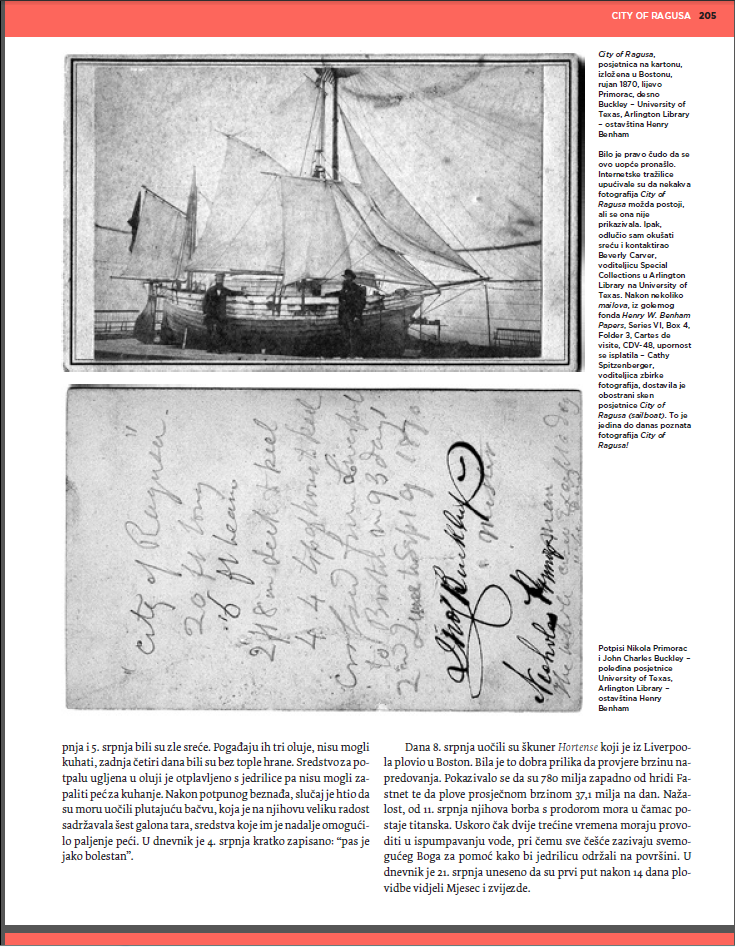 CITY OF RAGUSA 205
City of Ragusa,
posjetnica na kartonu,
izložena u Bostonu,
rujan 1870, lijevo
Primorac, desno
Buckley – University of
Texas, Arlington Library
– ostavština Henry
Benham
Bilo je pravo čudo da se
ovo uopće pronašlo.
Internetske tražilice
upućivale su da nekakva
fotografija City of
Ragusa možda postoji,
ali se ona nije
prikazivala. Ipak,
odlučio sam okušati
sreću i kontaktirao
Beverly Carver,
voditeljicu Special
Collections u Arlington
Library na University of
Texas. Nakon nekoliko
mailova, iz golemog
fonda Henry W. Benham
Papers, Series VI, Box 4,
Folder 3, Cartes de
visite, CDV-48, upornost
se isplatila – Cathy
Spitzenberger,
voditeljica zbirke
fotografija, dostavila je
obostrani sken
posjetnice City of
Ragusa (sailboat). To je
jedina do danas poznata
fotografija City of
Ragusa!
"City of Ragusa."
20 ft long
6 ft beam
deck & keel
to Boston in 93 days
Jno Buckley
Nicholas Primoraz
Potpisi Nikola Primorac
i John Charles Buckley –
poleđina posjetnice
University of Texas,
Arlington Library –
ostavština Henry
Benham
pnja i 5. srpnja bili su zle sreće. Pogađaju ih tri oluje, nisu mogli
kuhati, zadnja četiri dana bili su bez tople hrane. Sredstvo za po-
tpalu ugljena u oluji je otplavljeno s jedrilice pa nisu mogli za-
paliti peć za kuhanje. Nakon potpunog beznađa, slučaj je htio da
su moru uočili plutajuću bačvu, koja je na njihovu veliku radost
sadržavala šest galona tara, sredstva koje im je nadalje omogući-
lo paljenje peći. U dnevnik je 4. srpnja kratko zapisano: “pas je
jako bolestan”.
Dana 8. srpnja uočili su škuner Hortense koji je iz Liverpoo-
la plovio u Boston. Bila je to dobra prilika da provjere brzinu na-
predovanja. Pokazivalo se da su 780 milja zapadno od hridi Fa-
stnet te da plove prosječnom brzinom 37,1 milja na dan. Naža-
lost, od 11. srpnja njihova borba s prodorom mora u čamac po-
staje titanska. Uskoro čak dvije trećine vremena moraju provo-
diti u ispumpavanju vode, pri čemu sve češće zazivaju svemo-
gućeg Boga za pomoć kako bi jedrilicu održali na površini. U
dnevnik je 21. srpnja uneseno da su prvi put nakon 14 dana plo-
vidbe vidjeli Mjesec i zvijezde.